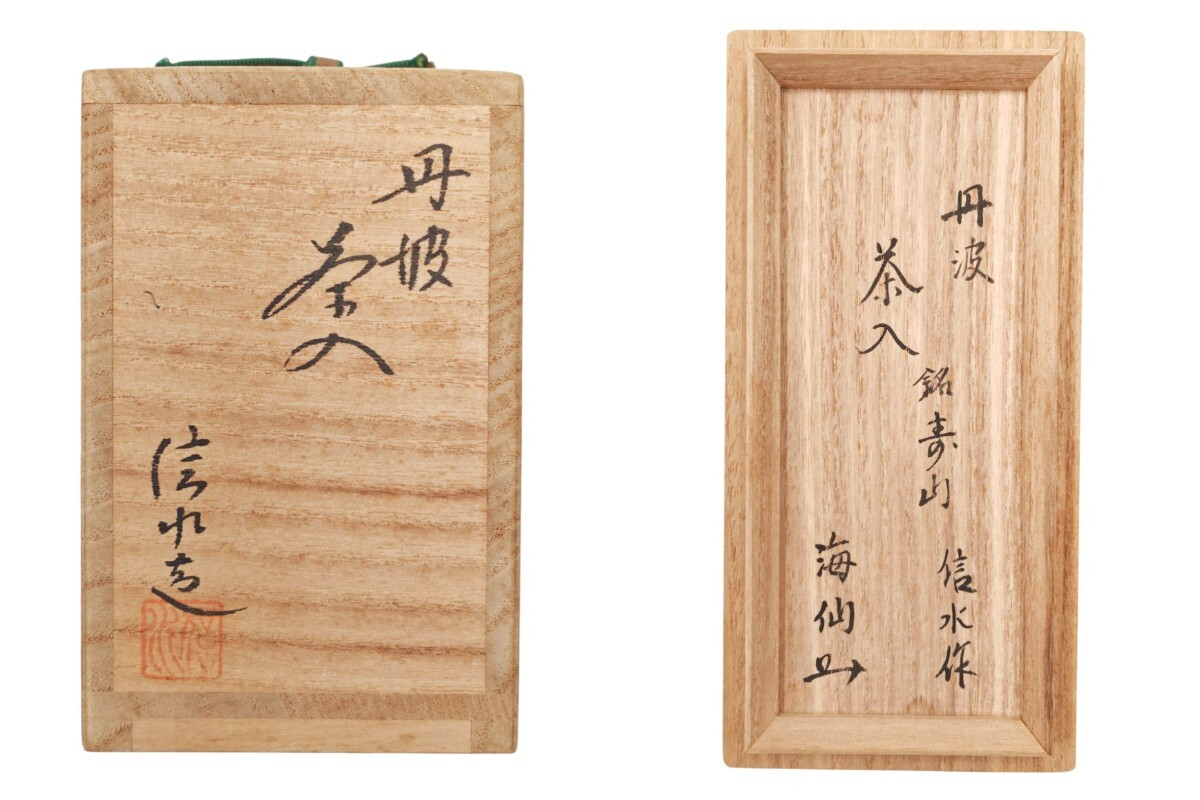 丹波
茶入
信水造
丹波
茶入
銘寿山
信水作
海仙